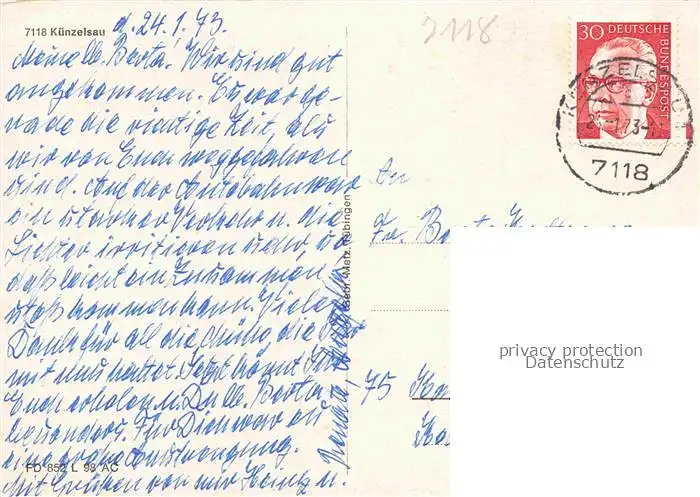 7118 Künzelsau
d. 24.1.73.
7118
Meine lb. Berta. Wir sind gut
angekommen. Es war ge-
rade die richtige Zeit, als
wir von Euch weggefahren
sind. Auf der Autobahn war
ein starker Verkehr u. die
Lichter irritieren sehr, so
daß leicht ein Zusammen-
stoß kommen kann. Viele
Dank für all die Mühe, die Ihr
mit uns hattet. Jetzt könnt Ihr
Euch erholen u. Du lb. Berta
besonders. Für Dich war es
eine große Anstrengung.
Mit Grüßen von mir Heinz u.
Renate,
Gebr. Metz, Tübingen
FD 852 L 98 AC
30 DEUTSCHE
BUNDESPOST
KÜNZELSAU 1
7118
An
Fr. Berta
75
privacy protection
Datenschutz